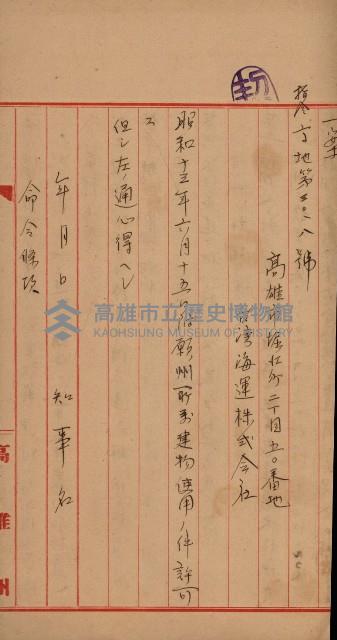 一案
指令高地第三〇八號
高雄市堀江町二丁目五〇番地
台湾海運株式会社
昭和十三年六月十五日付願州所有建物使用ノ件許可
ス
但シ左ノ通心得ヘシ
年月日
知事名
命令條項
高雄州
高雄市立歷史博物館
KAOHSIUNG MUSEUM OF HISTORY